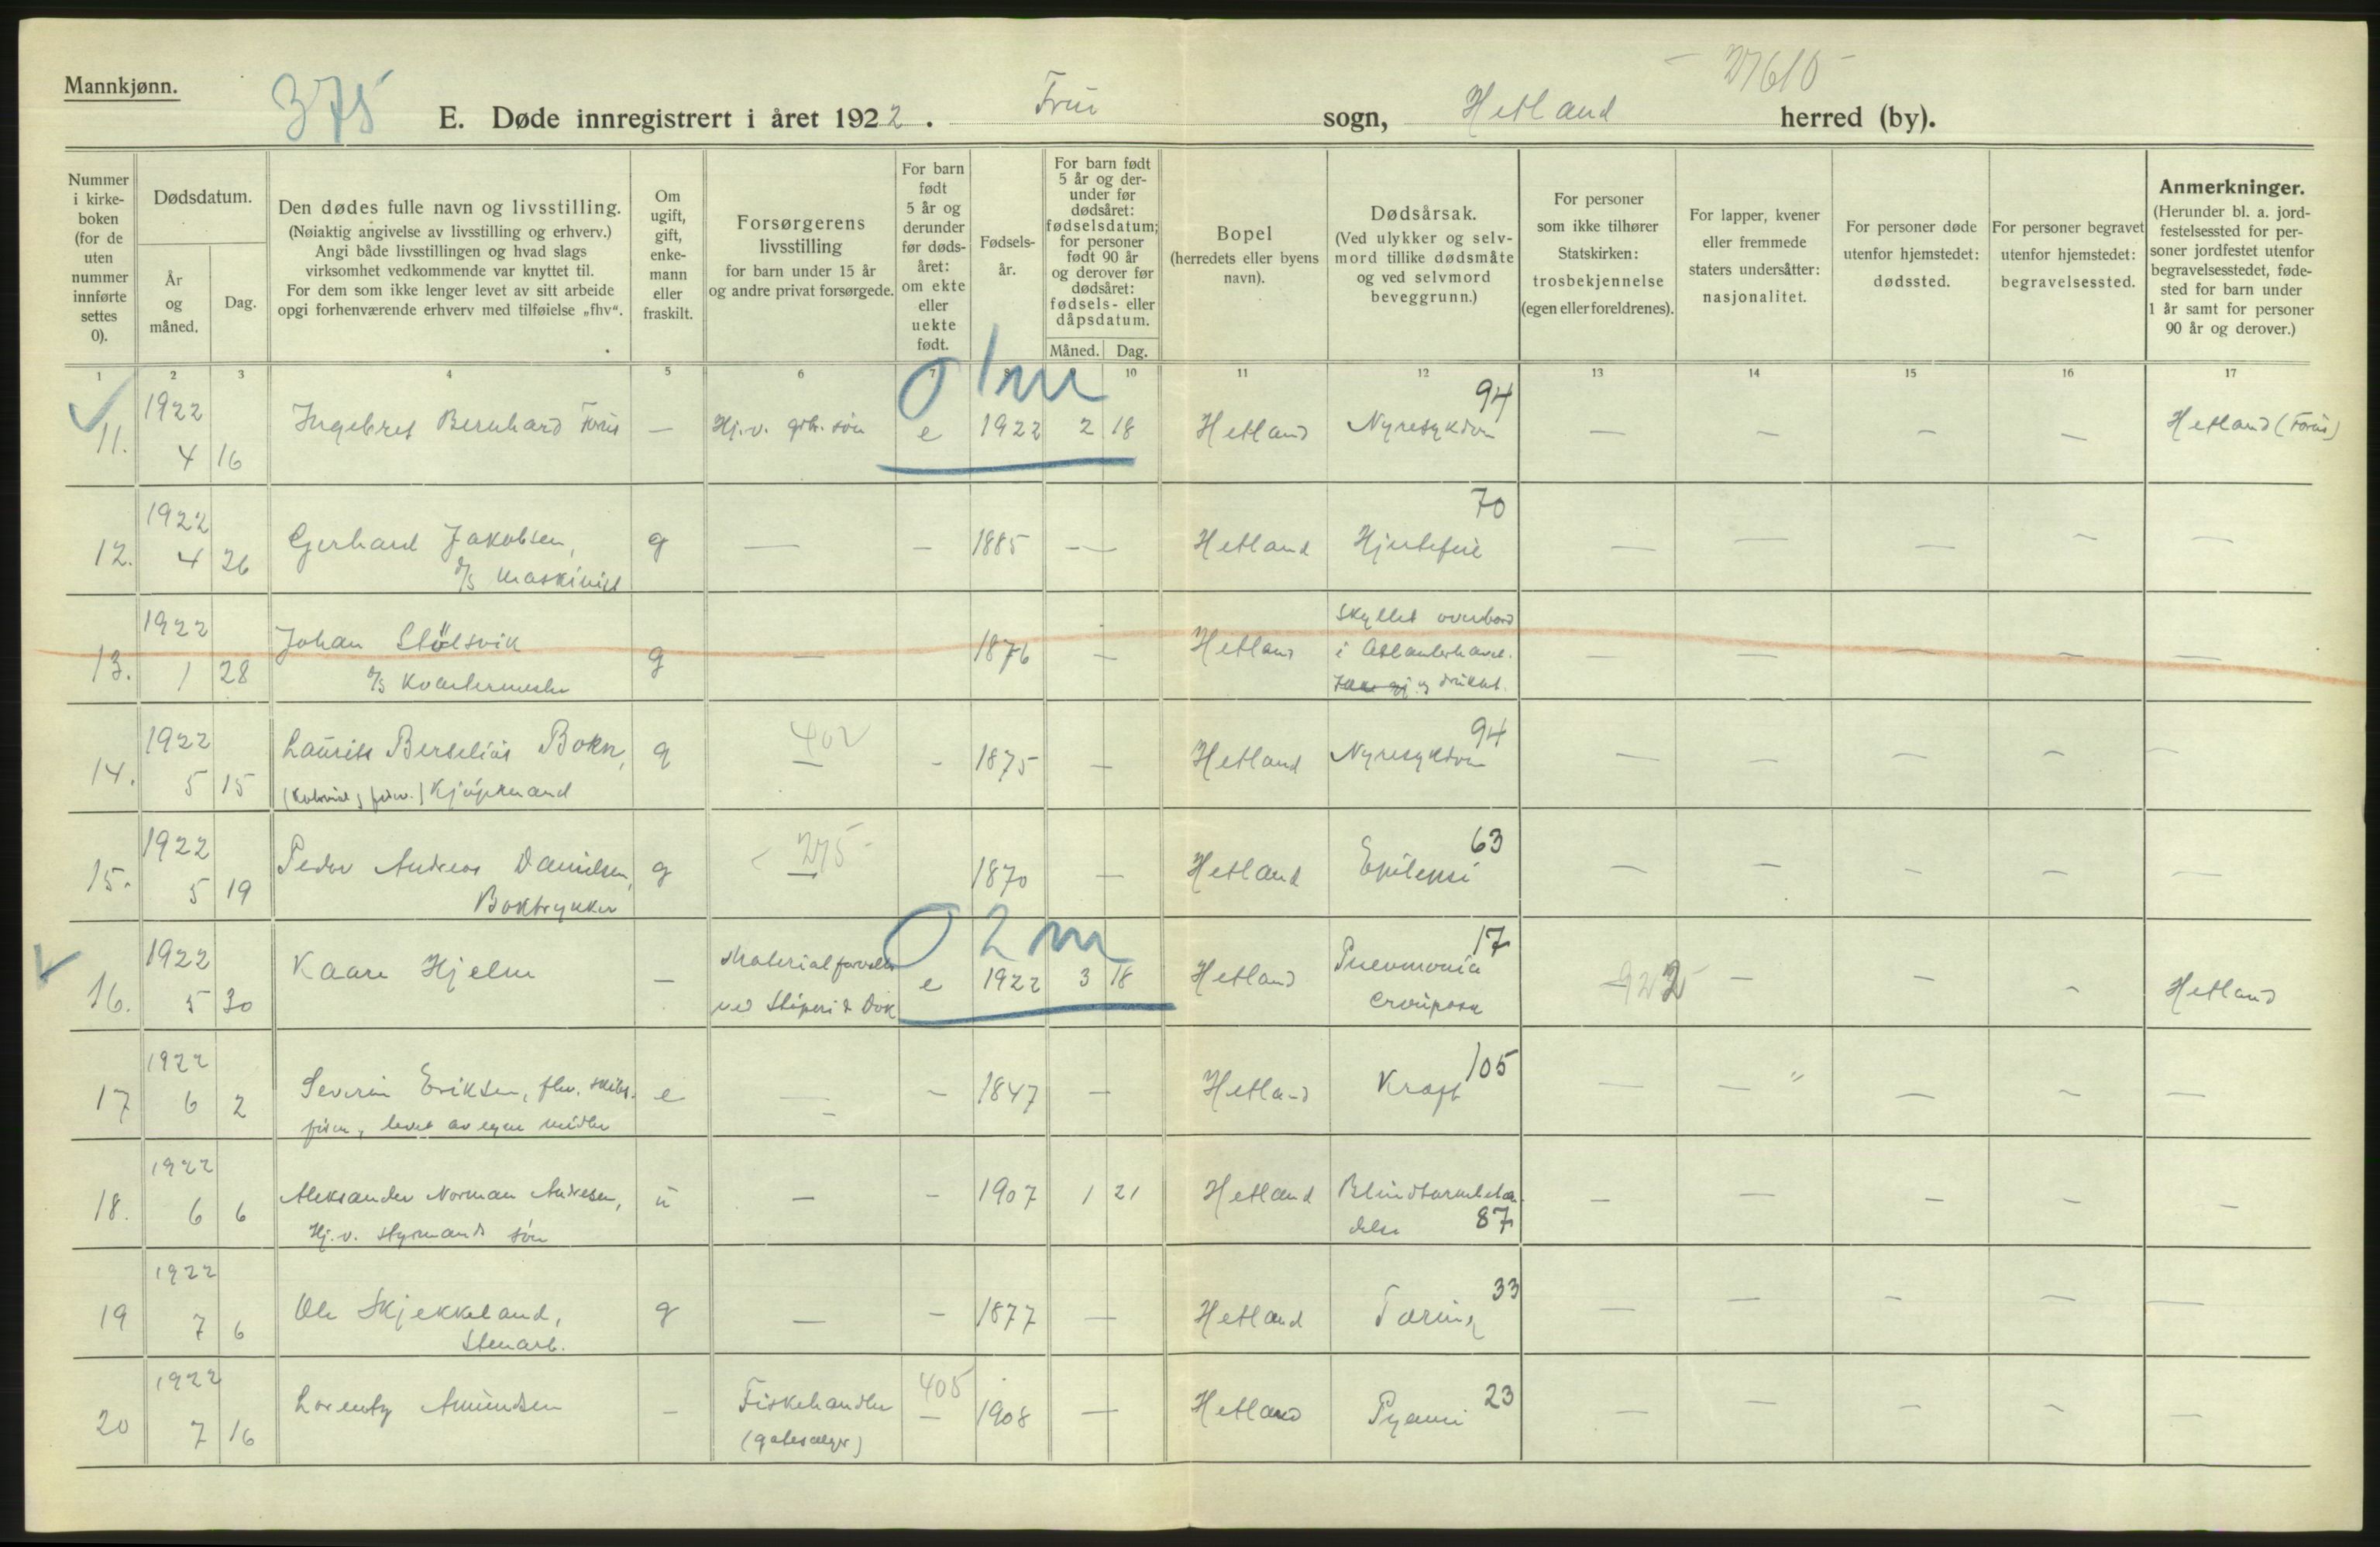 Mannkjønn.
375
27610
E. Døde innregistrert i året 1922. Frue sogn, Hetland herred (by).
Nummer i kirke- boken (for de uten nummer innførte settes 0).
Dødsdatum.
År og måned.
Dag.
Den dødes fulle navn og livsstilling.
(Nøiaktig angivelse av livsstilling og erhverv.)
Angi både livsstillingen og hvad slags
virksomhet vedkommende var knyttet til.
For dem som ikke lenger levet av sitt arbeide
opgi forhenværende erhverv med tilføielse „fhv“.
Om ugift, gift, enke- mann eller fraskilt.
Forsørgerens livsstilling
for barn under 15 år
og andre privat forsørgede.
For barn født 5 år og derunder før døds- året: om ekte eller uekte født.
Fødsels- år.
For barn født 5 år og der- under før dødsåret: fødselsdatum; for personer født 90 år og derover før dødsåret: fødsels- eller dåpsdatum.
Måned. Dag.
Bopel
(herredets eller byens navn).
Dødsårsak.
(Ved ulykker og selv-
mord tillike dødsmåte
og ved selvmord
beveggrunn.)
For personer som ikke tilhører Statskirken: trosbekjennelse (egen eller foreldrenes).
For lapper, kvener eller fremmede staters undersåtter: nasjonalitet.
For personer døde utenfor hjemstedet: dødssted.
For personer begravet utenfor hjemstedet: begravelsessted.
Anmerkninger.
(Herunder bl. a. jord-
festelsessted for per-
soner jordfestet utenfor
begravelsesstedet, føde-
sted for barn under
1 år samt for personer
90 år og derover.)
1 2 3 4 5 6 7 8 10 11 12 13 14 15 16 17
0 1 m
1922 94
11. 4 16 Ingebret Bernhard Forus — Hj.v. grb. søn e 1922 2 18 Hetland Nyresykdom — — — — Hetland (Forus)
1922 70
12. 4 26 Gerhard Jakobsen, g — — 1885 — Hetland Hjertefeil — — — — —
d/s maskinist
1922 skyllet overbord
13. 1 28 Johan Stölsvik g — 1876 — Hetland i Atlanterhavet. — — — — —
d/s kvartermester og druknet.
1922 402 94
14. 5 15 Laurits Berselius Bokn, g — - 1875 — Hetland Nyresykdom — — — — —
Kjøpmand
1922 275 63
15. 5 19 Peder Andreas Danielsen, g — 1870 — Hetland Epilepsi — — — — —
Boktrykker
0 2 m
1922 17
16. 5 30 Kaare Hjelm — Materialforvalter e 1922 3 18 Hetland Pneumonia 922 — — — Hetland
ved Støperi & Dok crouposa
1922 105
17 6 2 Severin Eriksen, fhv. skibs- e — — 1847 — Hetland Kræft — — — — —
fører, levet av egne midler
1922
18. 6 6 Aleksander Norman Andresen, u — — 1907 1 21 Hetland Blindtarmbetæn- — — — — —
Hj.v. styrmands søn delse 87
1922 33
19 7 6 Ole Skjekkeland, g — — 1877 — Hetland Tæring — — — — —
Stenarb.
1922 405 23
20 7 16 Lorentz Amundsen — Fiskehandler — 1908 — Hetland Pyæmi — — — — —
(gatesælger)